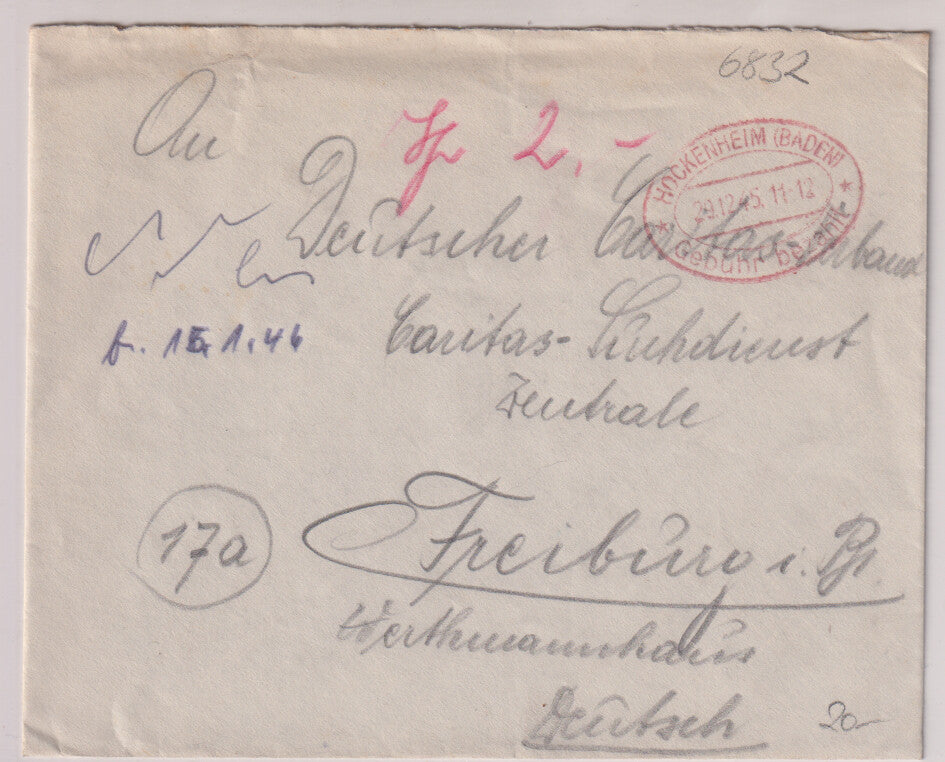 6832
An
2,-
HOCKENHEIM (BADEN)
29.12.45. 11-12
Gebühr bezahlt
Deutscher Caritasverband
15.1.46
Caritas-Suchdienst
Zentrale
17a
Freiburg i. Br.
Werthmannhaus
Deutsch
20-